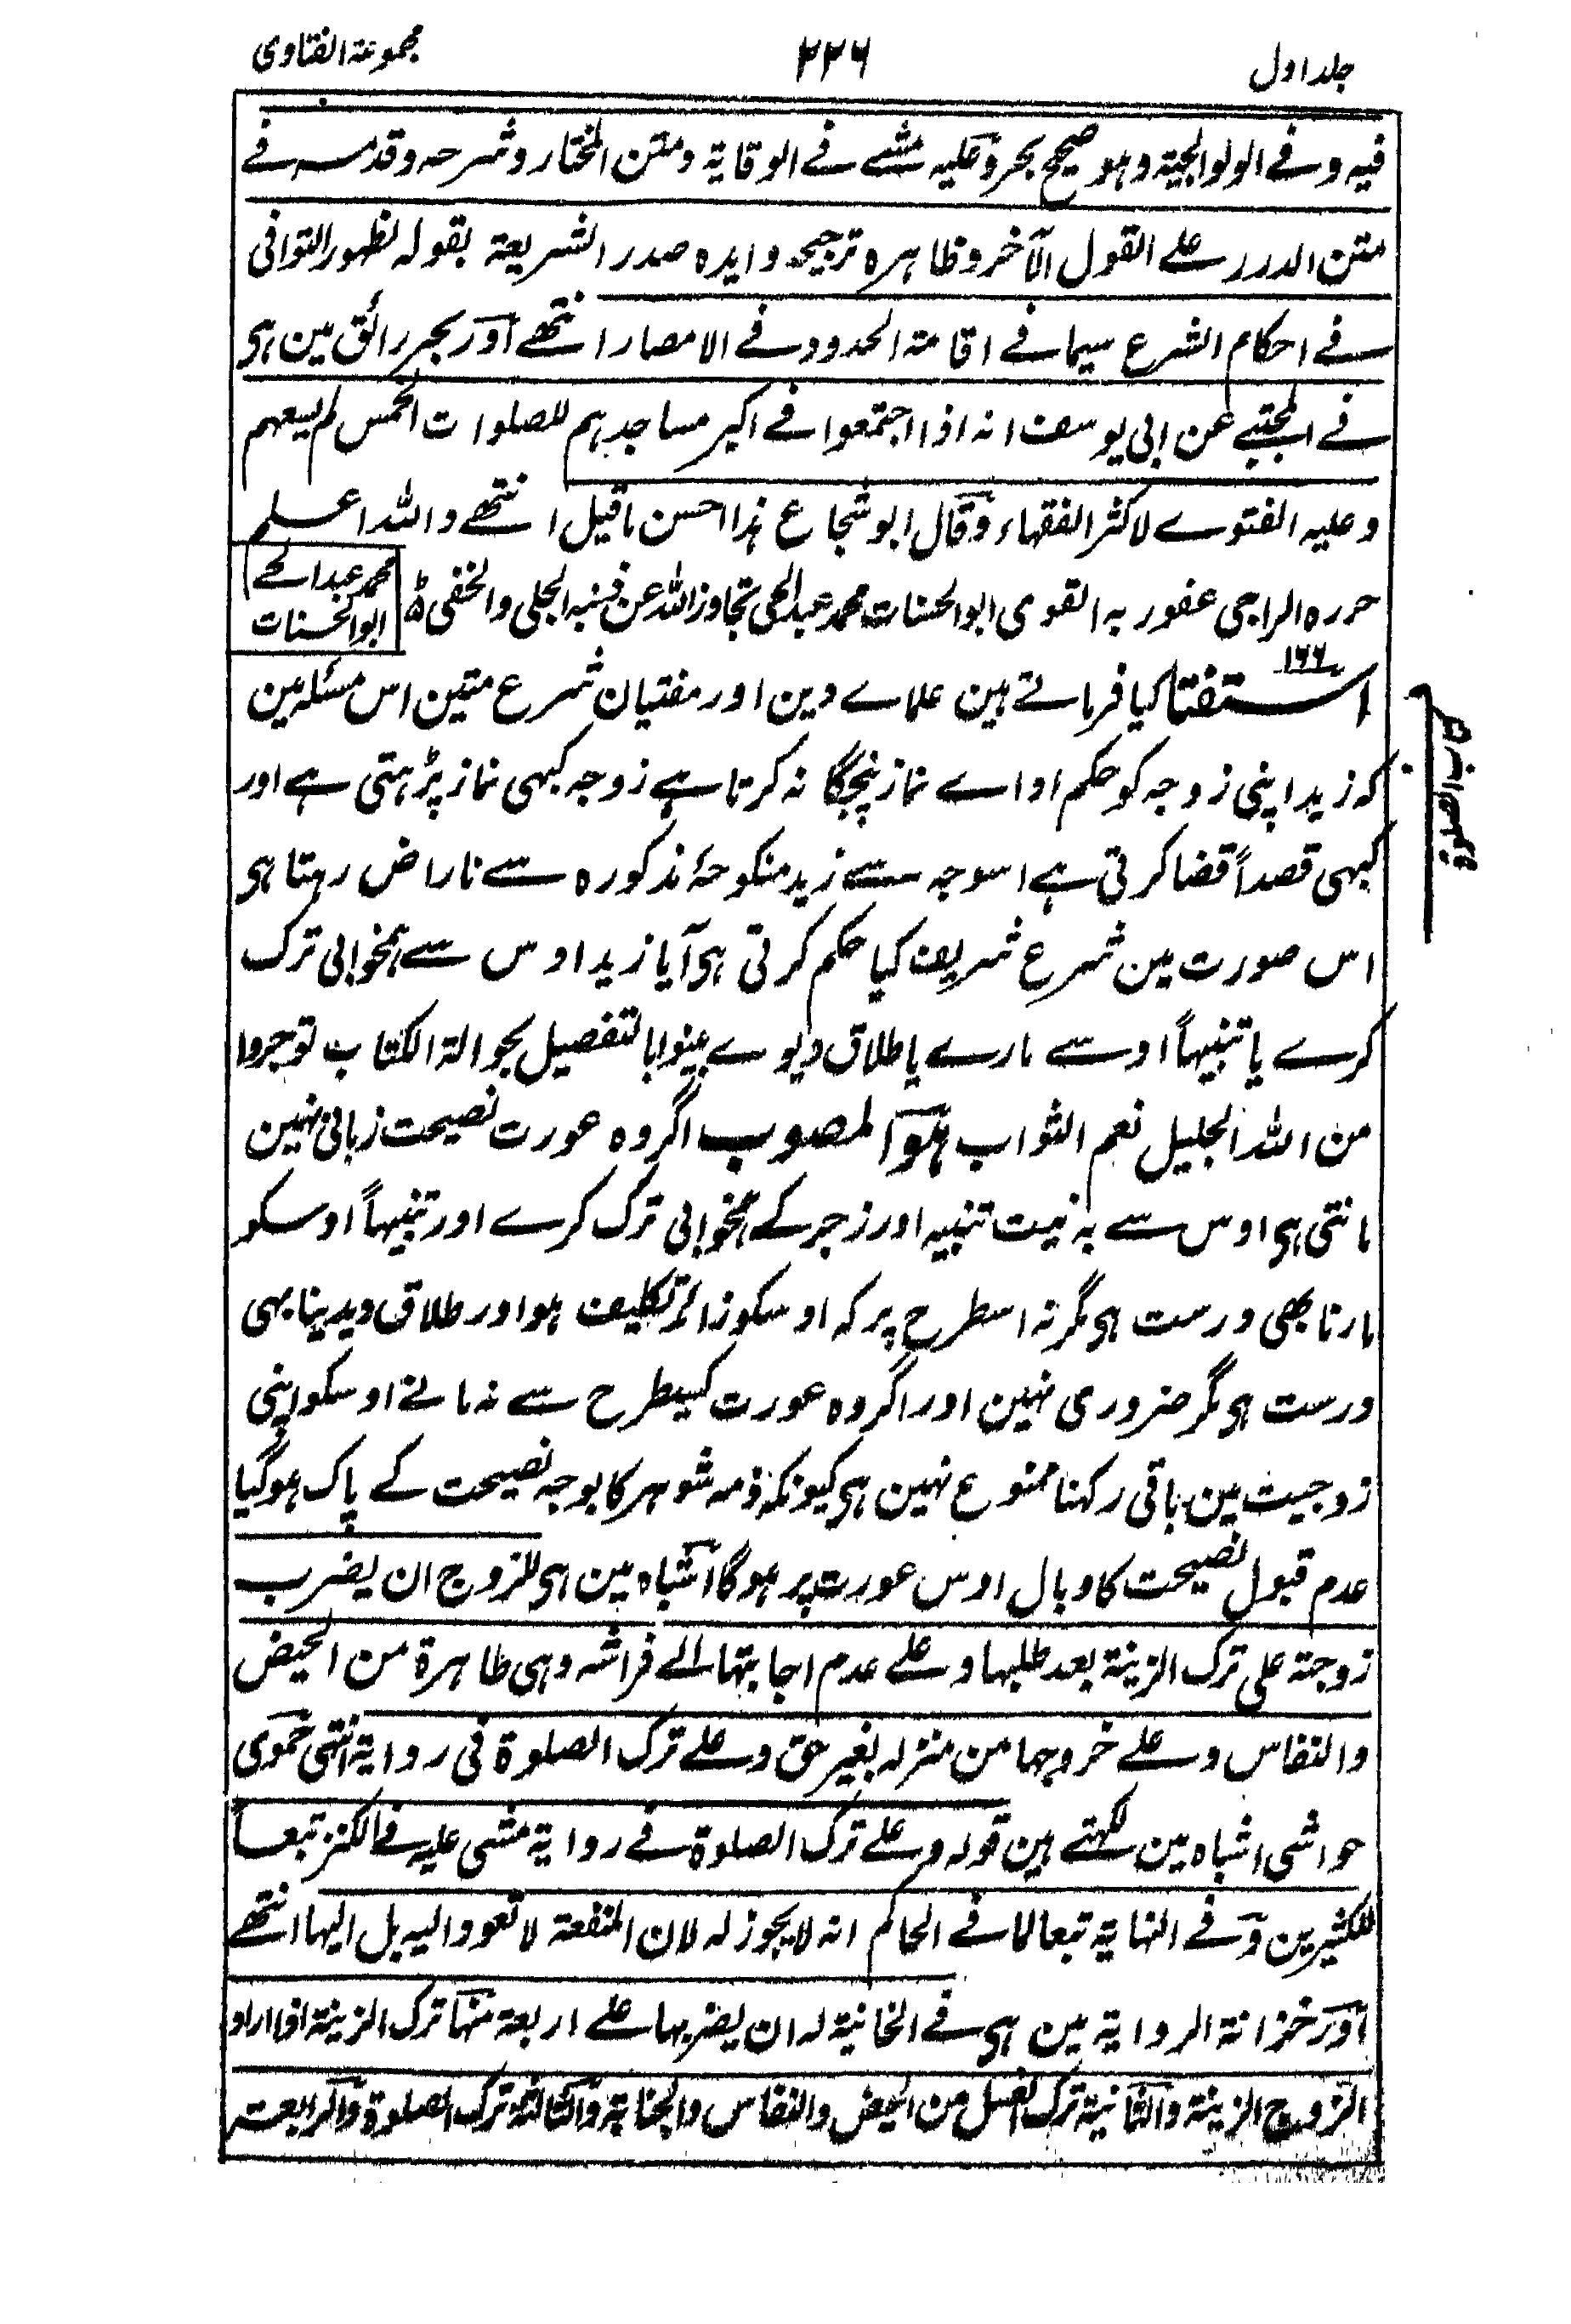 جلد اول
۲۲۶
مجموعۃ الفتاوی
فیہ وفے الولوالجیۃ وہو صحیح بحر وعلیہ مشے فے الوقایۃ ومتن المختار وشرحہ وقدمہ فے
متن الدرر علے القول الآخر وظاہرہ ترجیحہ وایدہ صدر الشریعۃ بقولہ لظہور التوانی
فے احکام الشرع سیما فے اقامۃ الحدود فے الامصار انتھے اور بحر رائق مین ہی
فے المجتبے عن ابی یوسف انہ اذا اجتمعوا فے اکبر مساجدہم للصلوات الخمس لم یسعہم
وعلیہ الفتوے لاکثر الفقہاء وقال ابو شجاع ہذا احسن ماقیل انتھے واللہ اعلم
حررہ الراجی عفو ربہ القوی ابو الحسنات محمد عبد الحی تجاوز اللہ عن ذنبہ الجلی والخفی
محمد عبد الحے
ابو الحسنات
۱۶۶
استفتا کیا فرماتے ہین علماے دین اور مفتیان شرع متین اس مسئلہ مین
کہ زید اپنی زوجہ کو حکم اداے نماز پنجگانہ کرتا ہے زوجہ کبہی نماز پڑہتی ہے اور
کبہی قصداً قضا کرتی ہے اسوجہ سے زید منکوحۂ مذکورہ سے ناراض رہتا ہی
اس صورت مین شرع شریف کیا حکم کرتی ہی آیا زید اوس سے ہمخوابی ترک
کرے یا تنبیہاً اوسے مارے یا طلاق دیوے بینوا بالتفصیل بحوالۃ الکتاب توجروا
من اللہ الجلیل نعم الثواب ہو المصوب اگر وہ عورت نصیحت زبانی نہین
مانتی ہی اوس سے بہ نیت تنبیہ اور زجر کے ہمخوابی ترک کرے اور تنبیہاً اوسکو
مارنا بھی درست ہی مگر نہ اسطرح پر کہ اوسکو زائد تکلیف ہو اور طلاق دیدینا بہی
درست ہی مگر ضروری نہین اور اگر وہ عورت کسیطرح سے نہ مانے اوسکو اپنی
زوجیت مین باقی رکہنا ممنوع نہین ہی کیونکہ ذمہ شوہر کا بوجہ نصیحت کے پاک ہوگیا
عدم قبول نصیحت کا وبال اوس عورت پر ہوگا اشباہ مین ہی للزوج ان یضرب
زوجتہ علی ترک الزینۃ بعد طلبہا وعلے عدم اجابتہا الے فراشہ وہی طاہرۃ من الحیض
والنفاس وعلے خروجہا من منزلہ بغیر حق وعلے ترک الصلوۃ فی روایۃ انتہی حموی
حواشی اشباہ مین لکہتے ہین قولہ وعلے ترک الصلوۃ فے روایۃ مشی علیہ فے الکنز تبعاً
للکثیرین وفے النہایۃ تبعا لما فے الحاکم انہ لایجوز لہ لان المنفعۃ لاتعود الیہ بل الیہا انتھے
اور خزانۃ الروایۃ مین ہی فے الخانیۃ لہ ان یضربہا علے اربعۃ منہا ترک الزینۃ اذا اراد
الزوج الزینۃ والثانیۃ ترک الغسل من الحیض والنفاس والجنابۃ والثالثۃ ترک الصلوۃ والرابعۃ